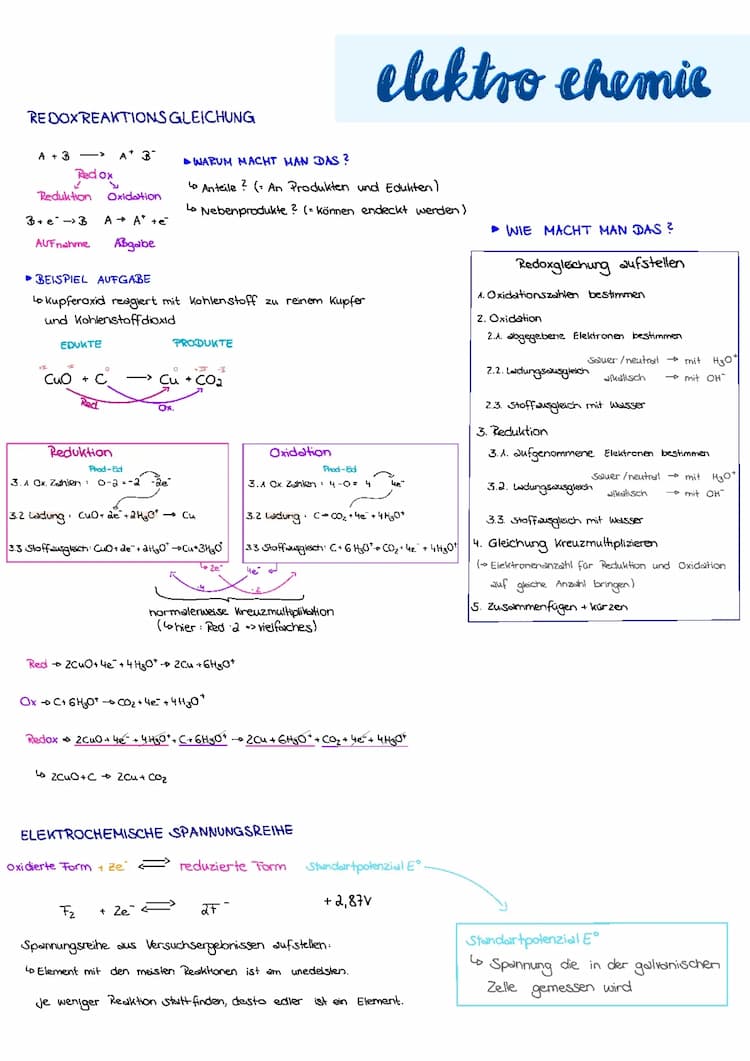 elektro chemie
REDOXREAKTIONSGLEICHUNG
A + B → A⁺ B⁻
Redox
Reduktion Oxidation
B + e⁻ → B A → A⁺ + e⁻
AUFnahme Abgabe
▸ WARUM MACHT MAN DAS?
↳ Anteile? (= An Produkten und Edukten)
↳ Nebenprodukte? (= können endeckt werden)
▸ BEISPIEL AUFGABE
↳ Kupferoxid reagiert mit Kohlenstoff zu reinem Kupfer
und Kohlenstoffdioxid
EDUKTE PRODUKTE
CuO + C → Cu + CO₂
Red. Ox.
▸ WIE MACHT MAN DAS?
Redoxgleichung aufstellen
1. Oxidationszahlen bestimmen
2. Oxidation
2.1. abgegebene Elektronen bestimmen
2.2. Ladungsausgleich sauer/neutral → mit H₃O⁺
alkalisch → mit OH⁻
2.3. Stoffausgleich mit Wasser
3. Reduktion
3.1. aufgenommene Elektronen bestimmen
3.2. Ladungsausgleich sauer/neutral → mit H₃O⁺
alkalisch → mit OH⁻
3.3. Stoffausgleich mit Wasser
4. Gleichung Kreuzmultiplizieren
(→ Elektronenanzahl für Reduktion und Oxidation
auf gleiche Anzahl bringen)
5. Zusammenfügen + kürzen
Reduktion
Prod-Ed
3.1 Ox. Zahlen: 0-2 = -2 -2e⁻
3.2 Ladung: CuO + 2e⁻ + 2H₃O⁺ → Cu
3.3 Stoffausgleich: CuO + 2e⁻ + 2H₃O⁺ → Cu + 3H₂O
Oxidation
Prod-Ed
3.1 Ox. Zahlen: 4-0 = 4 4e⁻
3.2 Ladung: C → CO₂ + 4e⁻ + 4H₃O⁺
3.3 Stoffausgleich: C + 6H₂O → CO₂ + 4e⁻ + 4H₃O⁺
↳ 2e⁻ 4e⁻ ↲
·4 ·2
normalerweise Kreuzmultiplikation
(↳ hier: Red ·2 => vielfaches)
Red → 2CuO + 4e⁻ + 4H₃O⁺ → 2Cu + 6H₃O⁺
Ox → C + 6H₃O⁺ → CO₂ + 4e⁻ + 4H₃O⁺
Redox → 2CuO + 4e⁻ + 4H₃O⁺ + C + 6H₃O⁺ → 2Cu + 6H₃O⁺ + CO₂ + 4e⁻ + 4H₃O⁺
↳ 2CuO + C → 2Cu + CO₂
ELEKTROCHEMISCHE SPANNUNGSREIHE
oxidierte Form + ze⁻ ⇌ reduzierte Form Standartpotenzial E°
F₂ + 2e⁻ ⇌ 2F⁻ +2,87V
Spannungsreihe aus Versuchsergebnissen aufstellen:
↳ Element mit den meisten Reaktionen ist am unedelsten.
je weniger Reaktion stattfinden, desto edler ist ein Element.
Standartpotenzial E°
↳ Spannung die in der galvanischen
Zelle gemessen wird